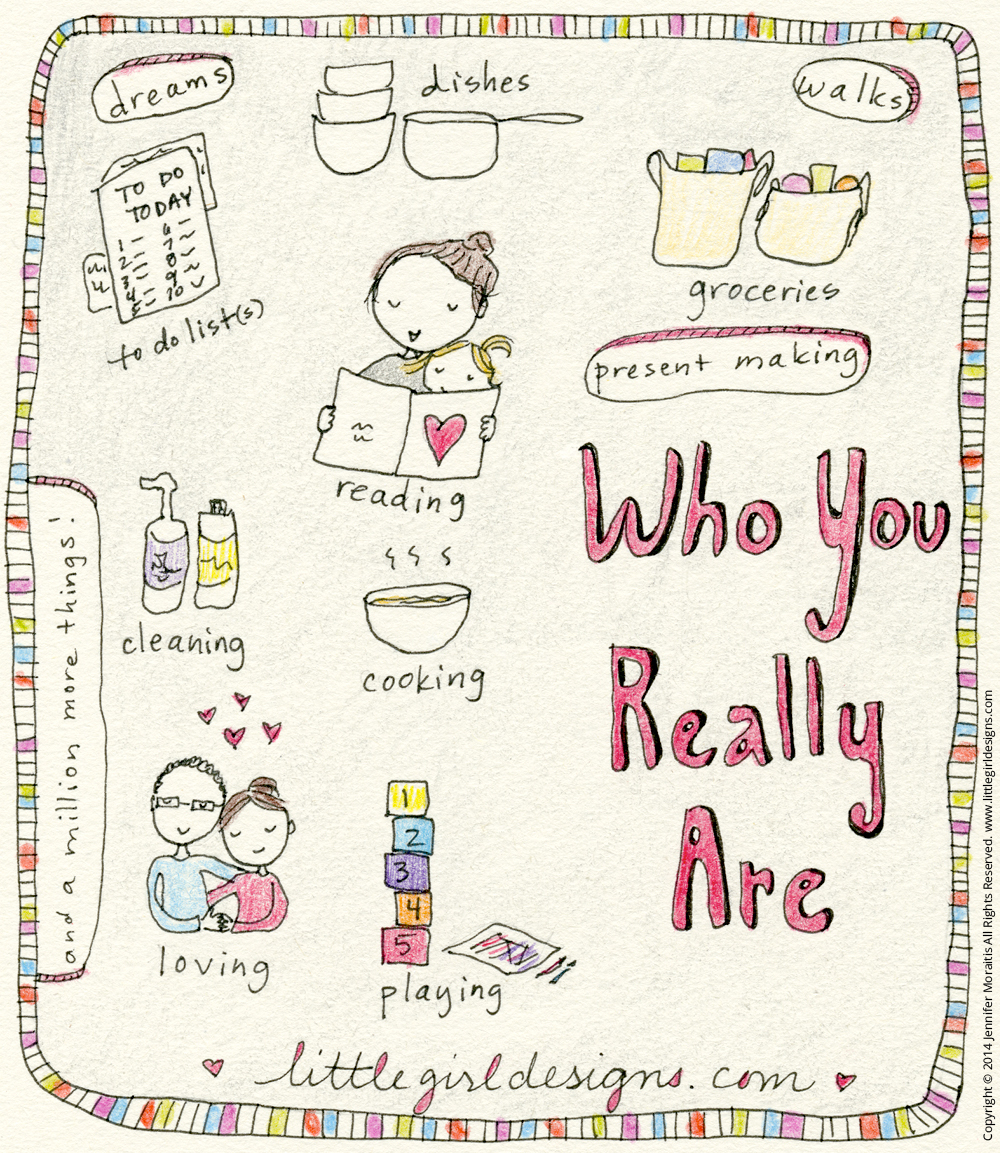 dreams
dishes
walks
TO DO
TODAY
1
2
3
4
5
6
7
8
9
10
to do list(s)
groceries
present making
reading
Who You
Really
Are
and a million more things!
cleaning
cooking
loving
1
2
3
4
5
playing
littlegirldesigns.com
Copyright © 2014 Jennifer Moraitis All Rights Reserved. www.littlegirldesigns.com